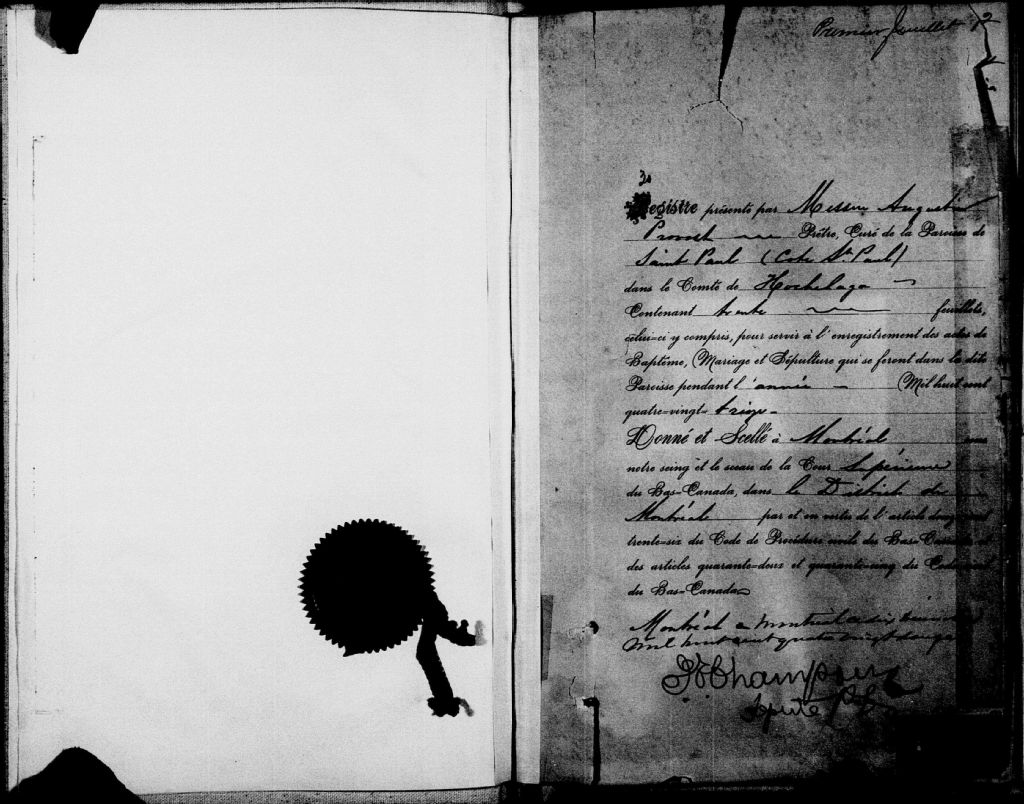 Premier feuillet
Registre présenté par Messire Augustin
Provost Prêtre, Curé de la Paroisse de
Saint Paul (Cote St. Paul)
dans le Comté de Hochelaga
Contenant trente feuillets,
celui-ci y compris, pour servir à l'enregistrement des actes de
Baptême, Mariage et Sépulture qui se feront dans la dite
Paroisse pendant l'année Mil huit cent
quatre-vingt- treize
Donné et Scellé à Montréal sous
notre seing et le sceau de la Cour Supérieure
du Bas-Canada, dans le District de
Montréal par et en vertu de l'article douze cent
trente-six du Code de Procédure civile du Bas-Canada et
des articles quarante-deux et quarante-cinq du Code civil
du Bas-Canada
Montréal a montréal ce
mil huit cent quatre vingt douze
Champ
Député